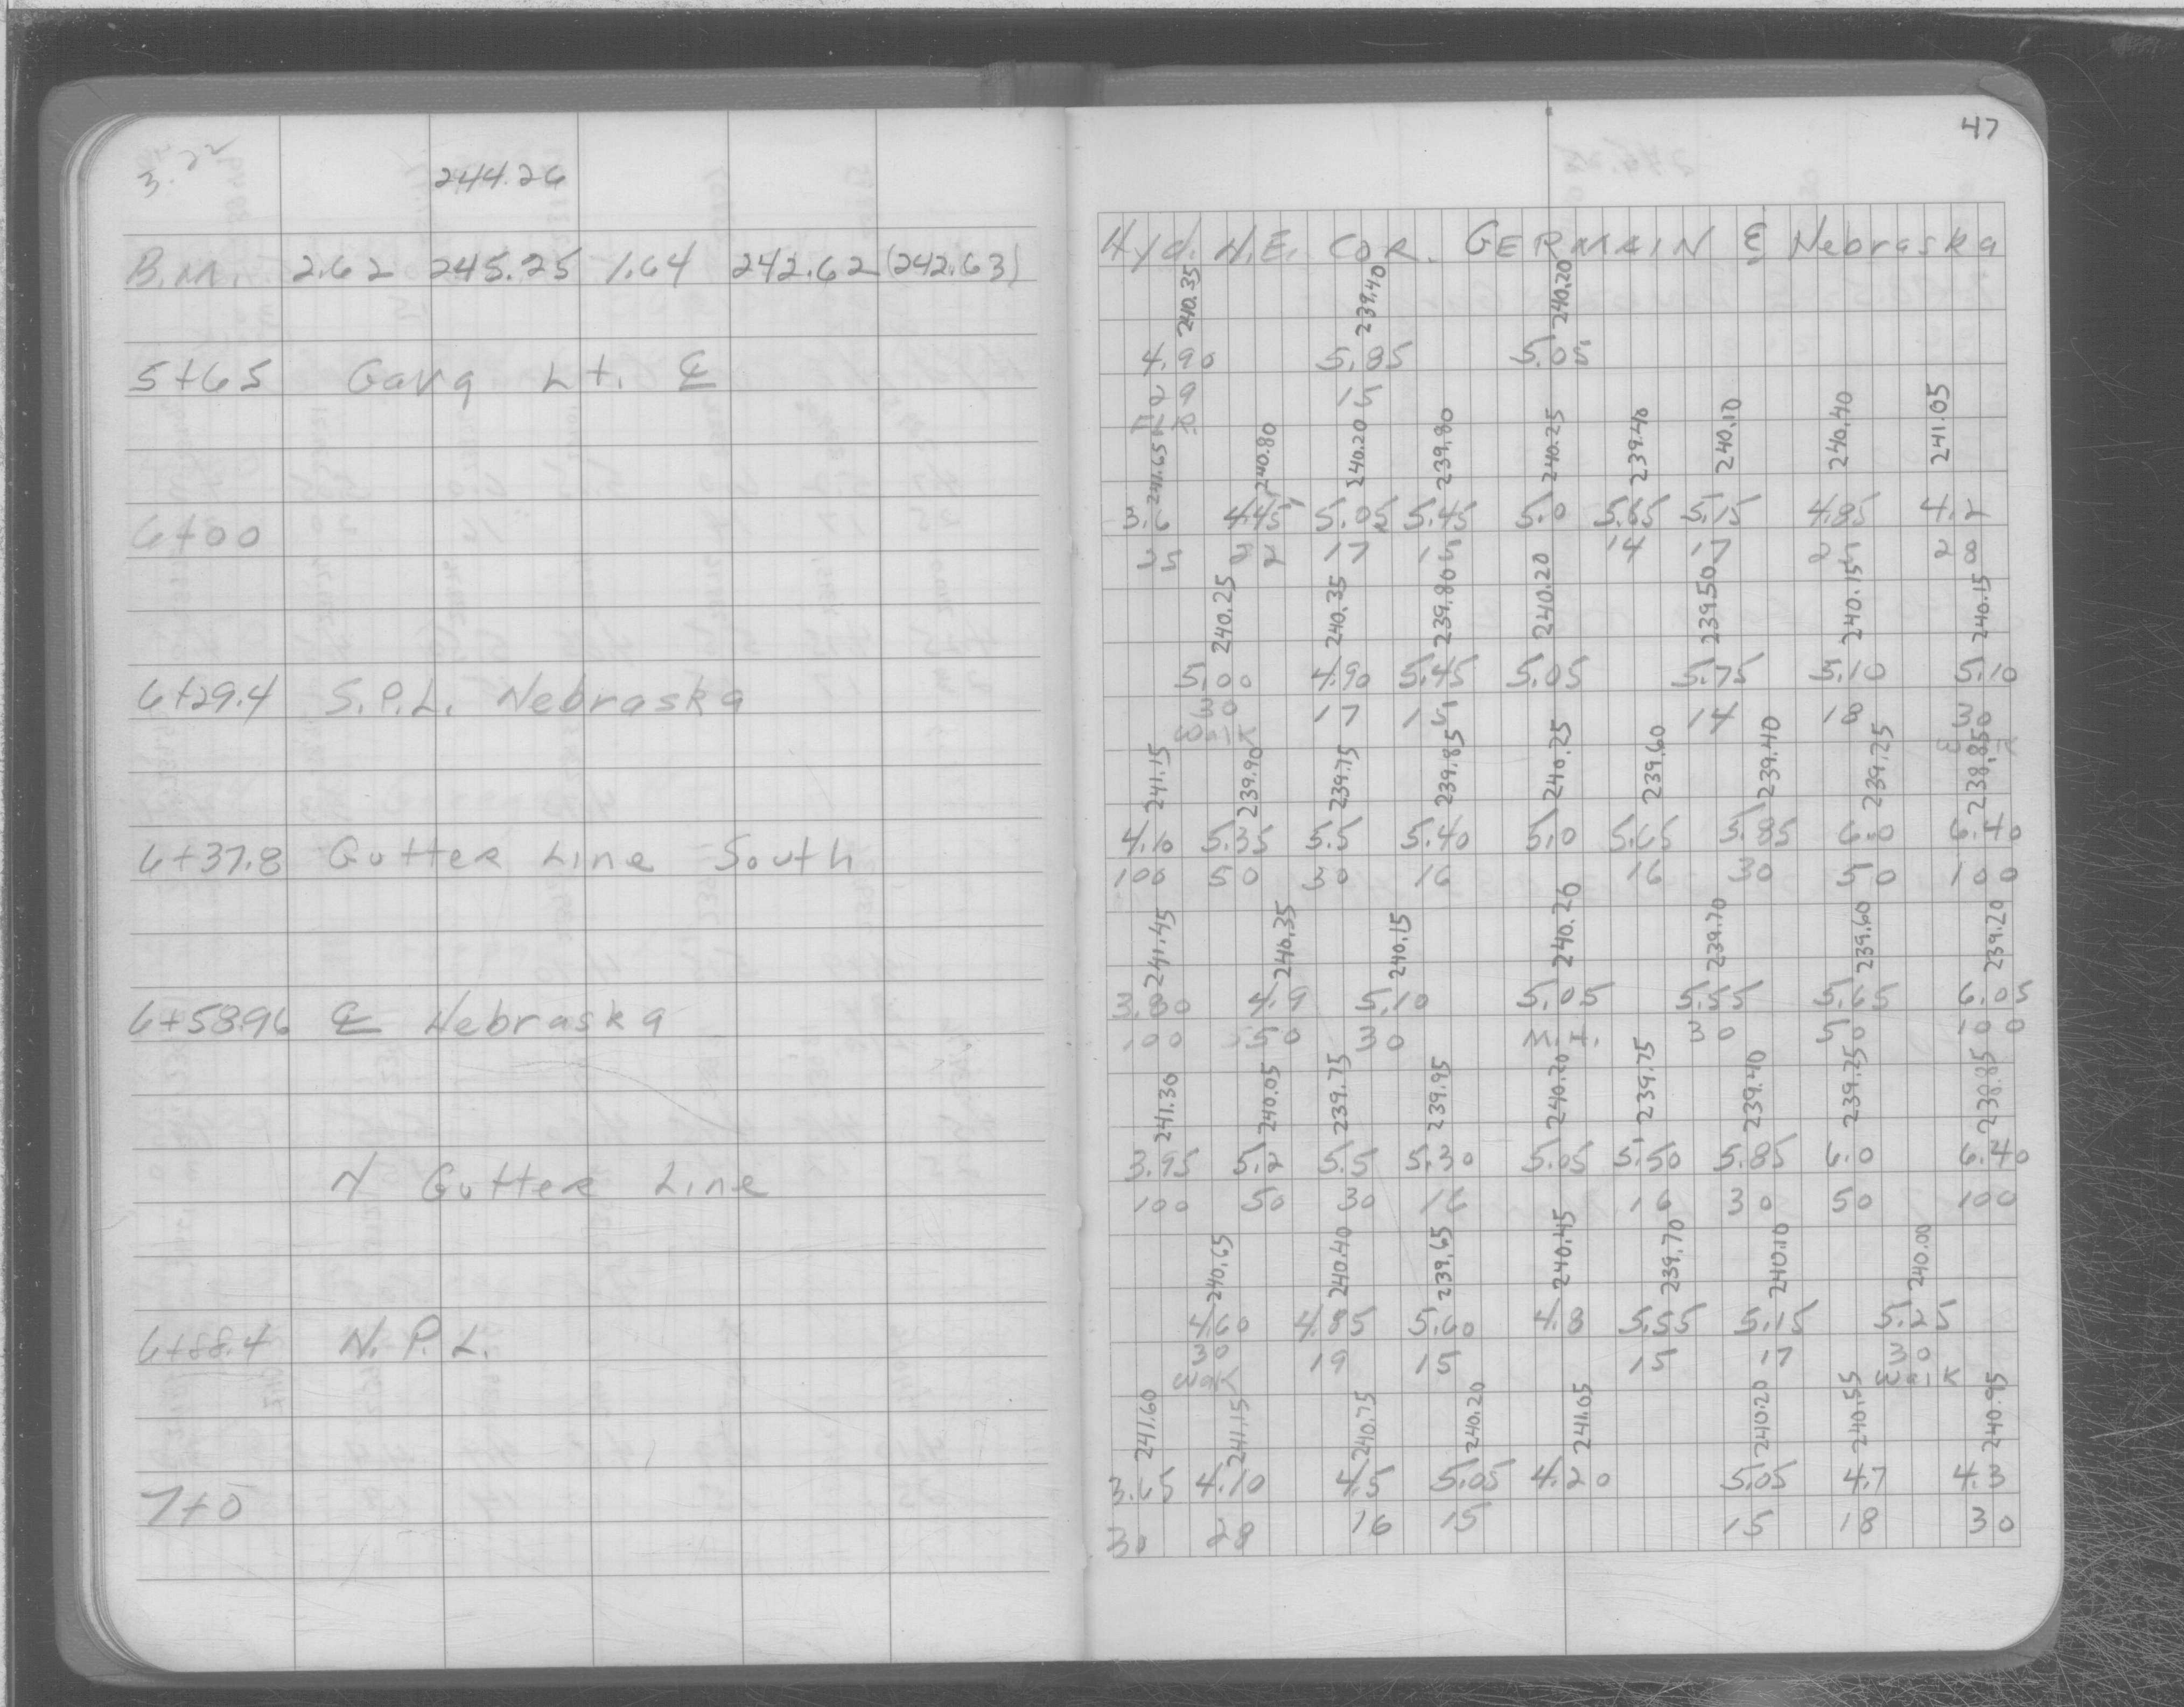 47
3.22
244.26
B.M. 2.62 245.25 1.64 242.62 (242.63) Hyd. N.E. COR. GERMAIN & Nebraska
240.35 239.40 240.20
4.90 5.85 5.05
5+65 Garg Lt. ℄
29 15
241.65 240.80 240.20 239.80 240.25 239.40 240.10 240.40 241.05
3.6 4.45 5.05 5.45 5.0 5.85 5.15 4.85 4.2
6+00
25 22 17 15 14 17 25 28
240.25 240.35 239.80 240.20 239.50 240.15 240.15
5.00 4.90 5.45 5.05 5.75 5.10 5.10
6+29.4 S.P.L. Nebraska
30 17 15 14 18 30
Walk Walk
241.15 239.90 239.75 239.85 240.25 239.60 239.40 239.25 238.85
4.10 5.35 5.5 5.40 5.0 5.65 5.85 6.0 6.40
6+37.8 Gutter Line South
100 50 30 16 16 30 50 100
241.45 240.35 240.15 240.20 239.70 239.60 239.20
3.80 4.9 5.10 5.05 5.55 5.65 6.05
6+58.96 ℄ Nebraska
100 50 30 M.H. 30 50 100
241.30 240.05 239.75 239.95 240.20 239.75 239.40 239.25 238.85
3.95 5.2 5.5 5.30 5.05 5.50 5.85 6.0 6.40
N Gutter Line
100 50 30 16 16 30 50 100
240.65 240.40 239.65 240.45 239.70 240.10 240.00
4.60 4.85 5.60 4.8 5.55 5.15 5.25
6+88.4 N.P.L.
30 19 15 15 17 30
Walk Walk
241.60 241.15 240.75 240.20 241.05 240.20 240.55 240.95
3.65 4.10 4.5 5.05 4.20 5.05 4.7 4.3
7+0
30 28 16 15 15 18 30